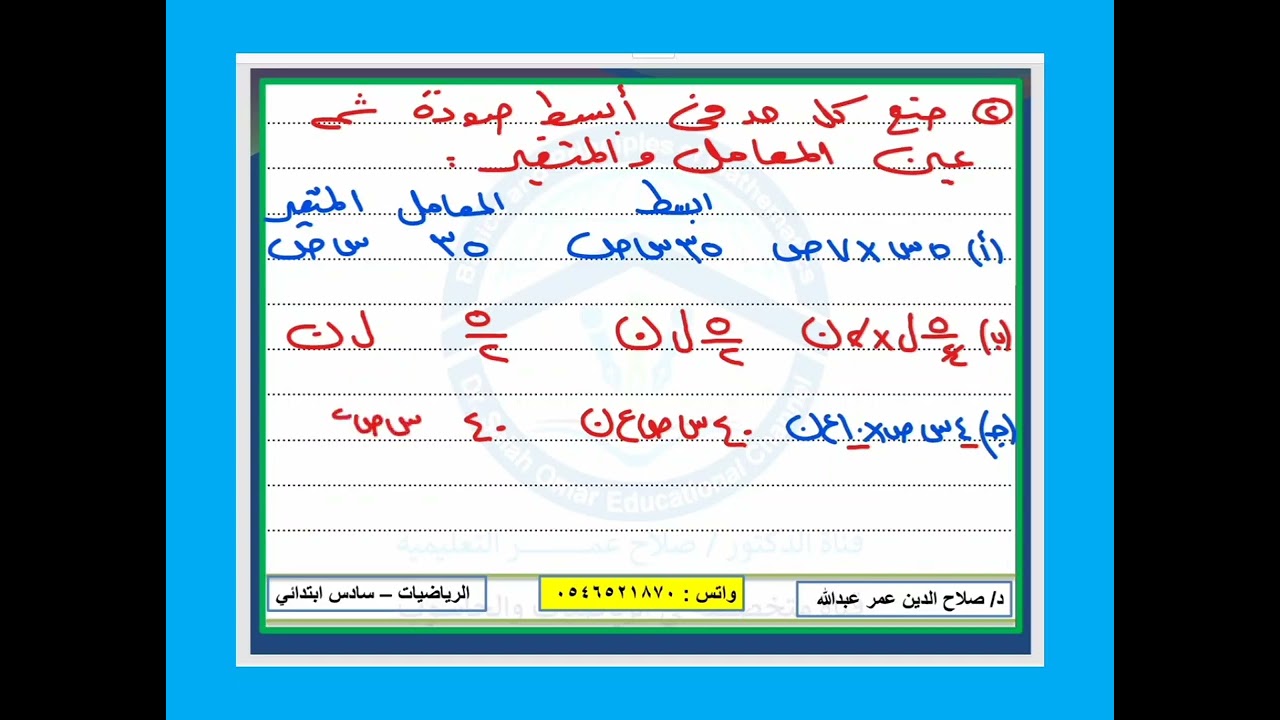 ② ضع كل حد في أبسط صورة ثم
عين المعامل والمتغير :
البسط المعامل المتغير
(أ) ٥ س × ٧ ص ٣٥ س ص ٣٥ س ص
(ب) ٥/٤ ل × ٢ ن ٥/٢ ل ن ٥/٢ ل ن
(جـ) ٤ س ص × ١٠ ع ن ٤٠ س ص ع ن ٤٠ س ص
قناة الدكتور / صلاح عمر التعليمية
د/ صلاح الدين عمر عبدالله
واتس : ٠٥٤٦٥٢١٨٧٠
الرياضيات – سادس ابتدائي